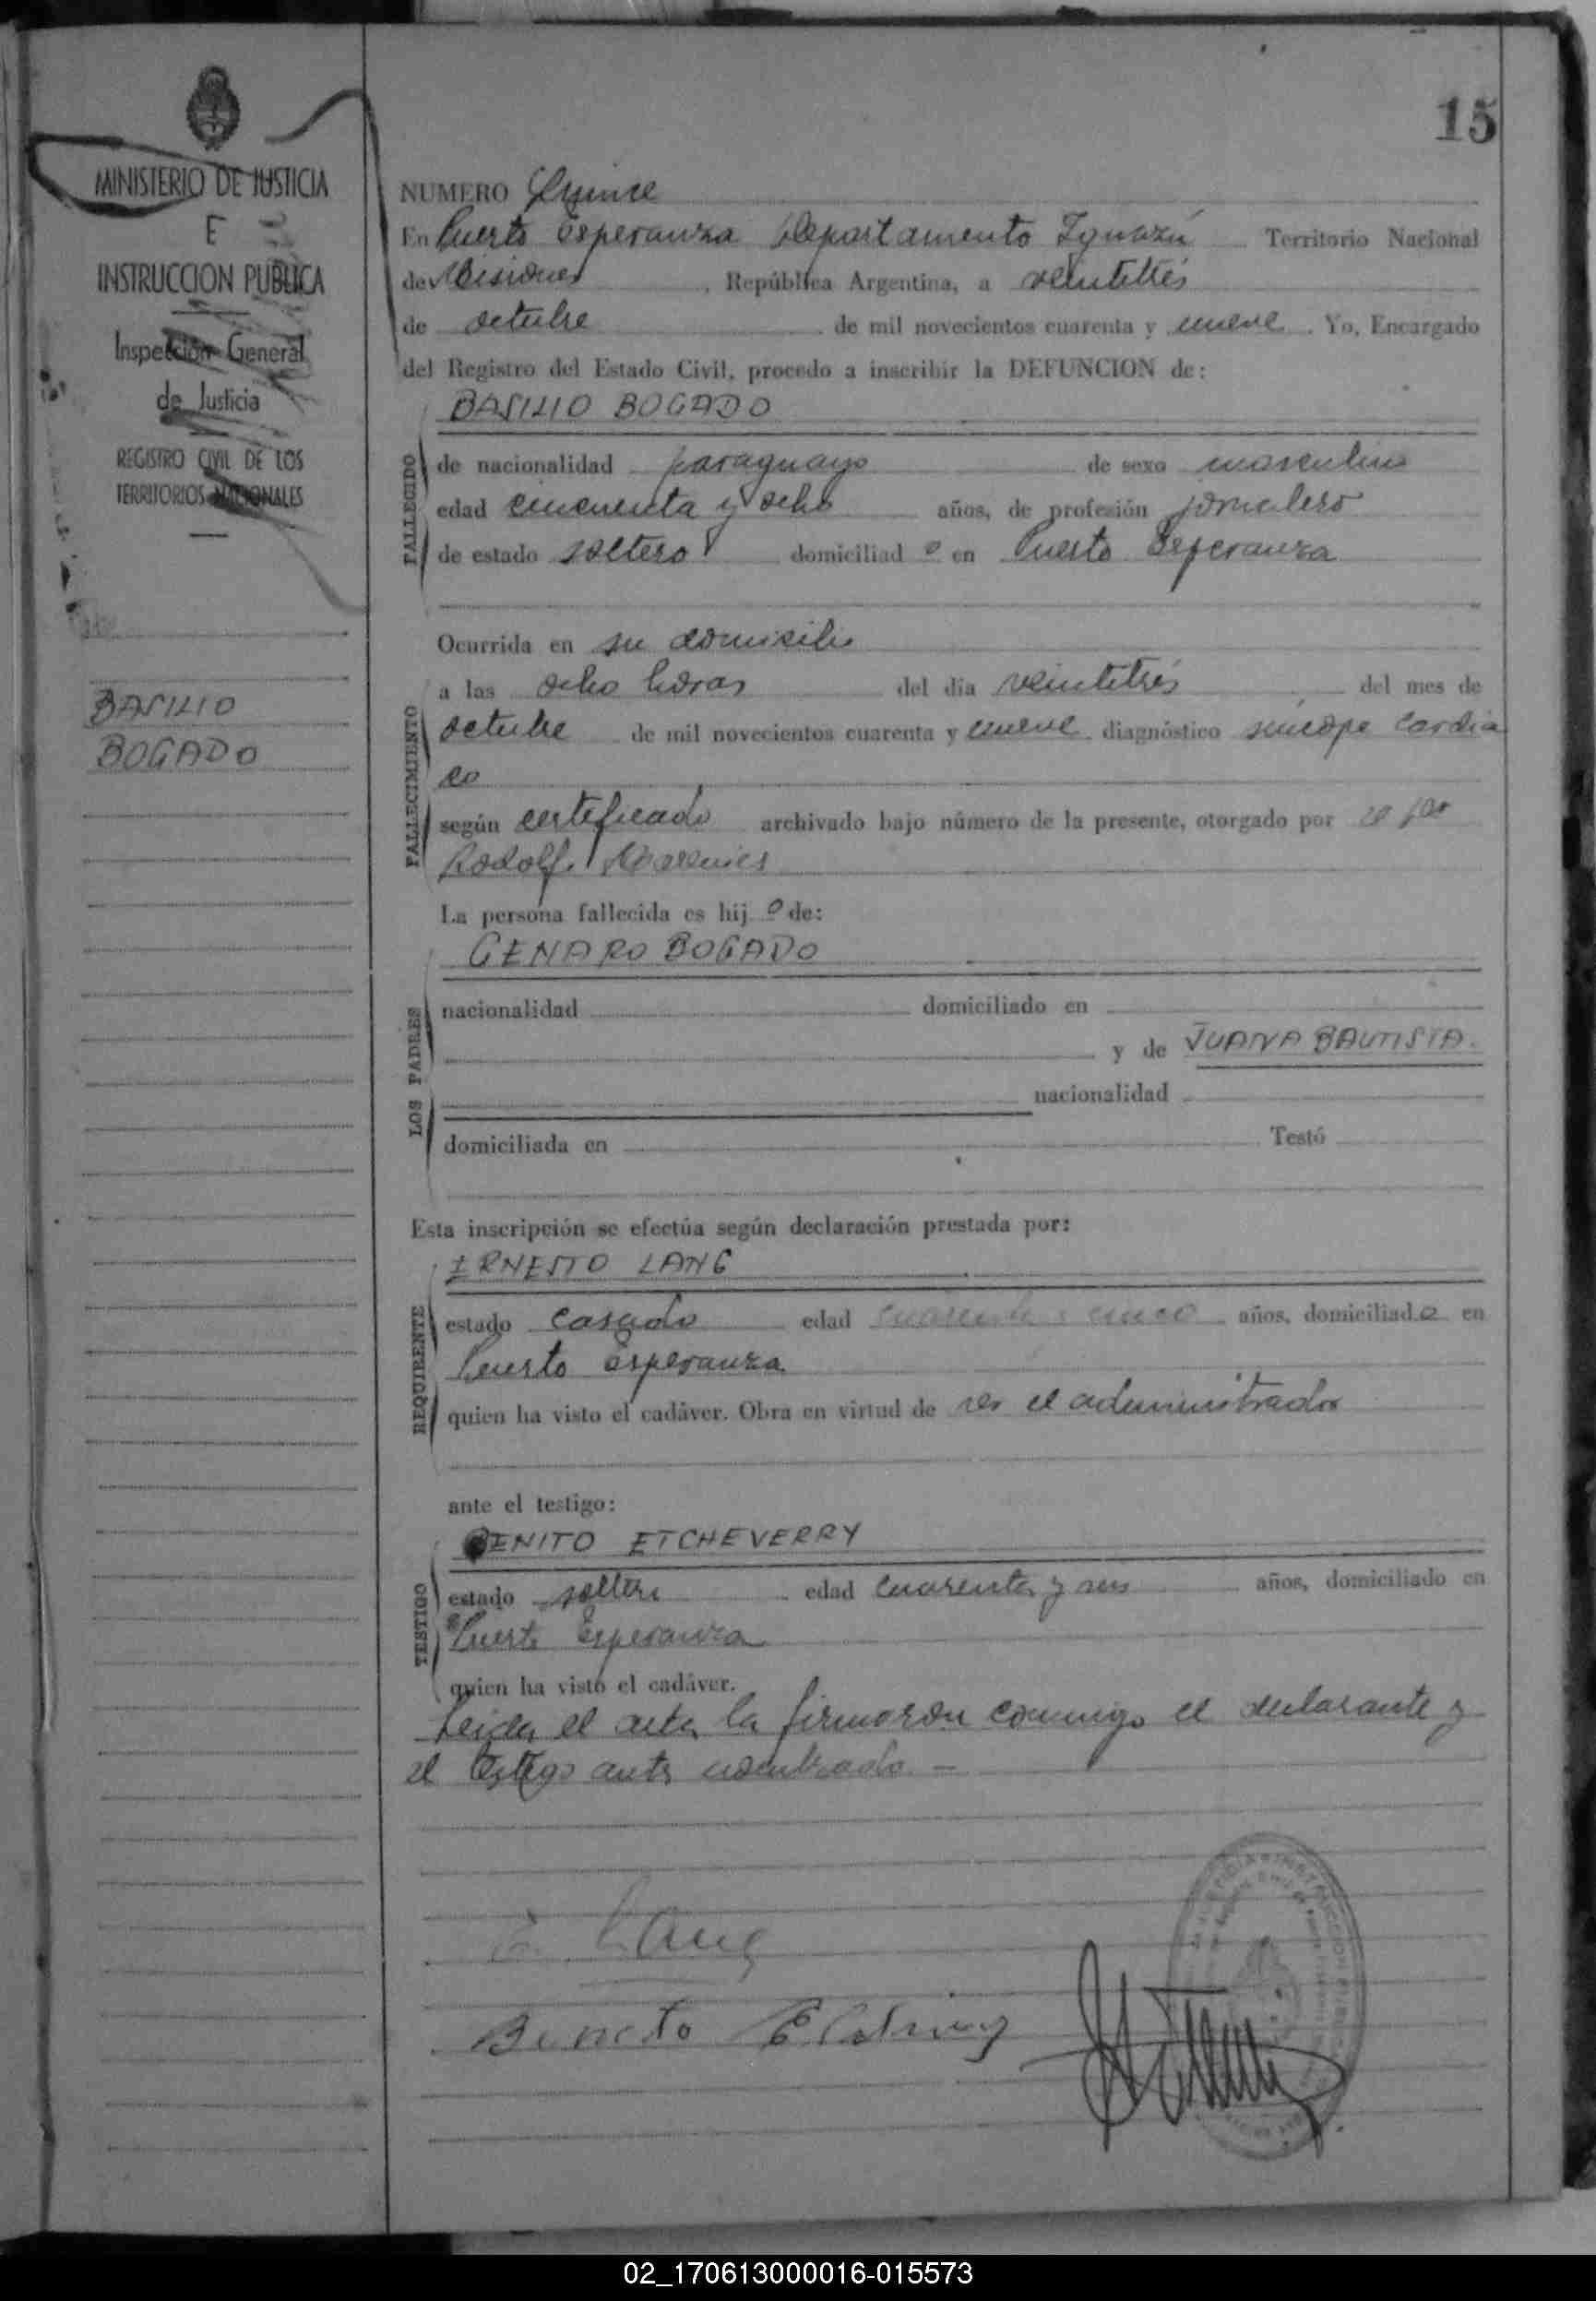 15
MINISTERIO DE JUSTICIA
E
INSTRUCCION PUBLICA
Inspección General
de Justicia
REGISTRO CIVIL DE LOS
TERRITORIOS NACIONALES
BASILIO
BOGADO
NUMERO Quince
En Puerto Esperanza Departamento Iguazú Territorio Nacional
de Misiones, República Argentina, a veintitrés
de octubre de mil novecientos cuarenta y nueve. Yo, Encargado
del Registro del Estado Civil, procedo a inscribir la DEFUNCION de:
BASILIO BOGADO
FALLECIDO
de nacionalidad paraguayo de sexo masculino
edad cincuenta y ocho años, de profesión jornalero
de estado soltero domiciliad o en Puerto Esperanza
Ocurrida en su domicilio
a las ocho horas del día veintitrés del mes de
FALLECIMIENTO
octubre de mil novecientos cuarenta y nueve diagnóstico síncope cardía
co
según certificado archivado bajo número de la presente, otorgado por
Rodolfo
La persona fallecida es hij o de:
GENARO BOGADO
LOS PADRES
nacionalidad domiciliado en
y de JUANA BAUTISTA.
nacionalidad
domiciliada en Testó
Esta inscripción se efectúa según declaración prestada por:
ERNESTO LANG
REQUIRENTE
estado casado edad cuarenta y cinco años, domiciliad o en
Puerto Esperanza
quien ha visto el cadáver. Obra en virtud de ser el administrador
ante el testigo:
BENITO ETCHEVERRY
TESTIGO
estado soltero edad cuarenta y seis años, domiciliado en
Puerto Esperanza
quien ha visto el cadáver.
Leída el acta la firmaron conmigo el declarante y
el testigo antes nombrado. —
E. Lang
Benito
02_170613000016-015573